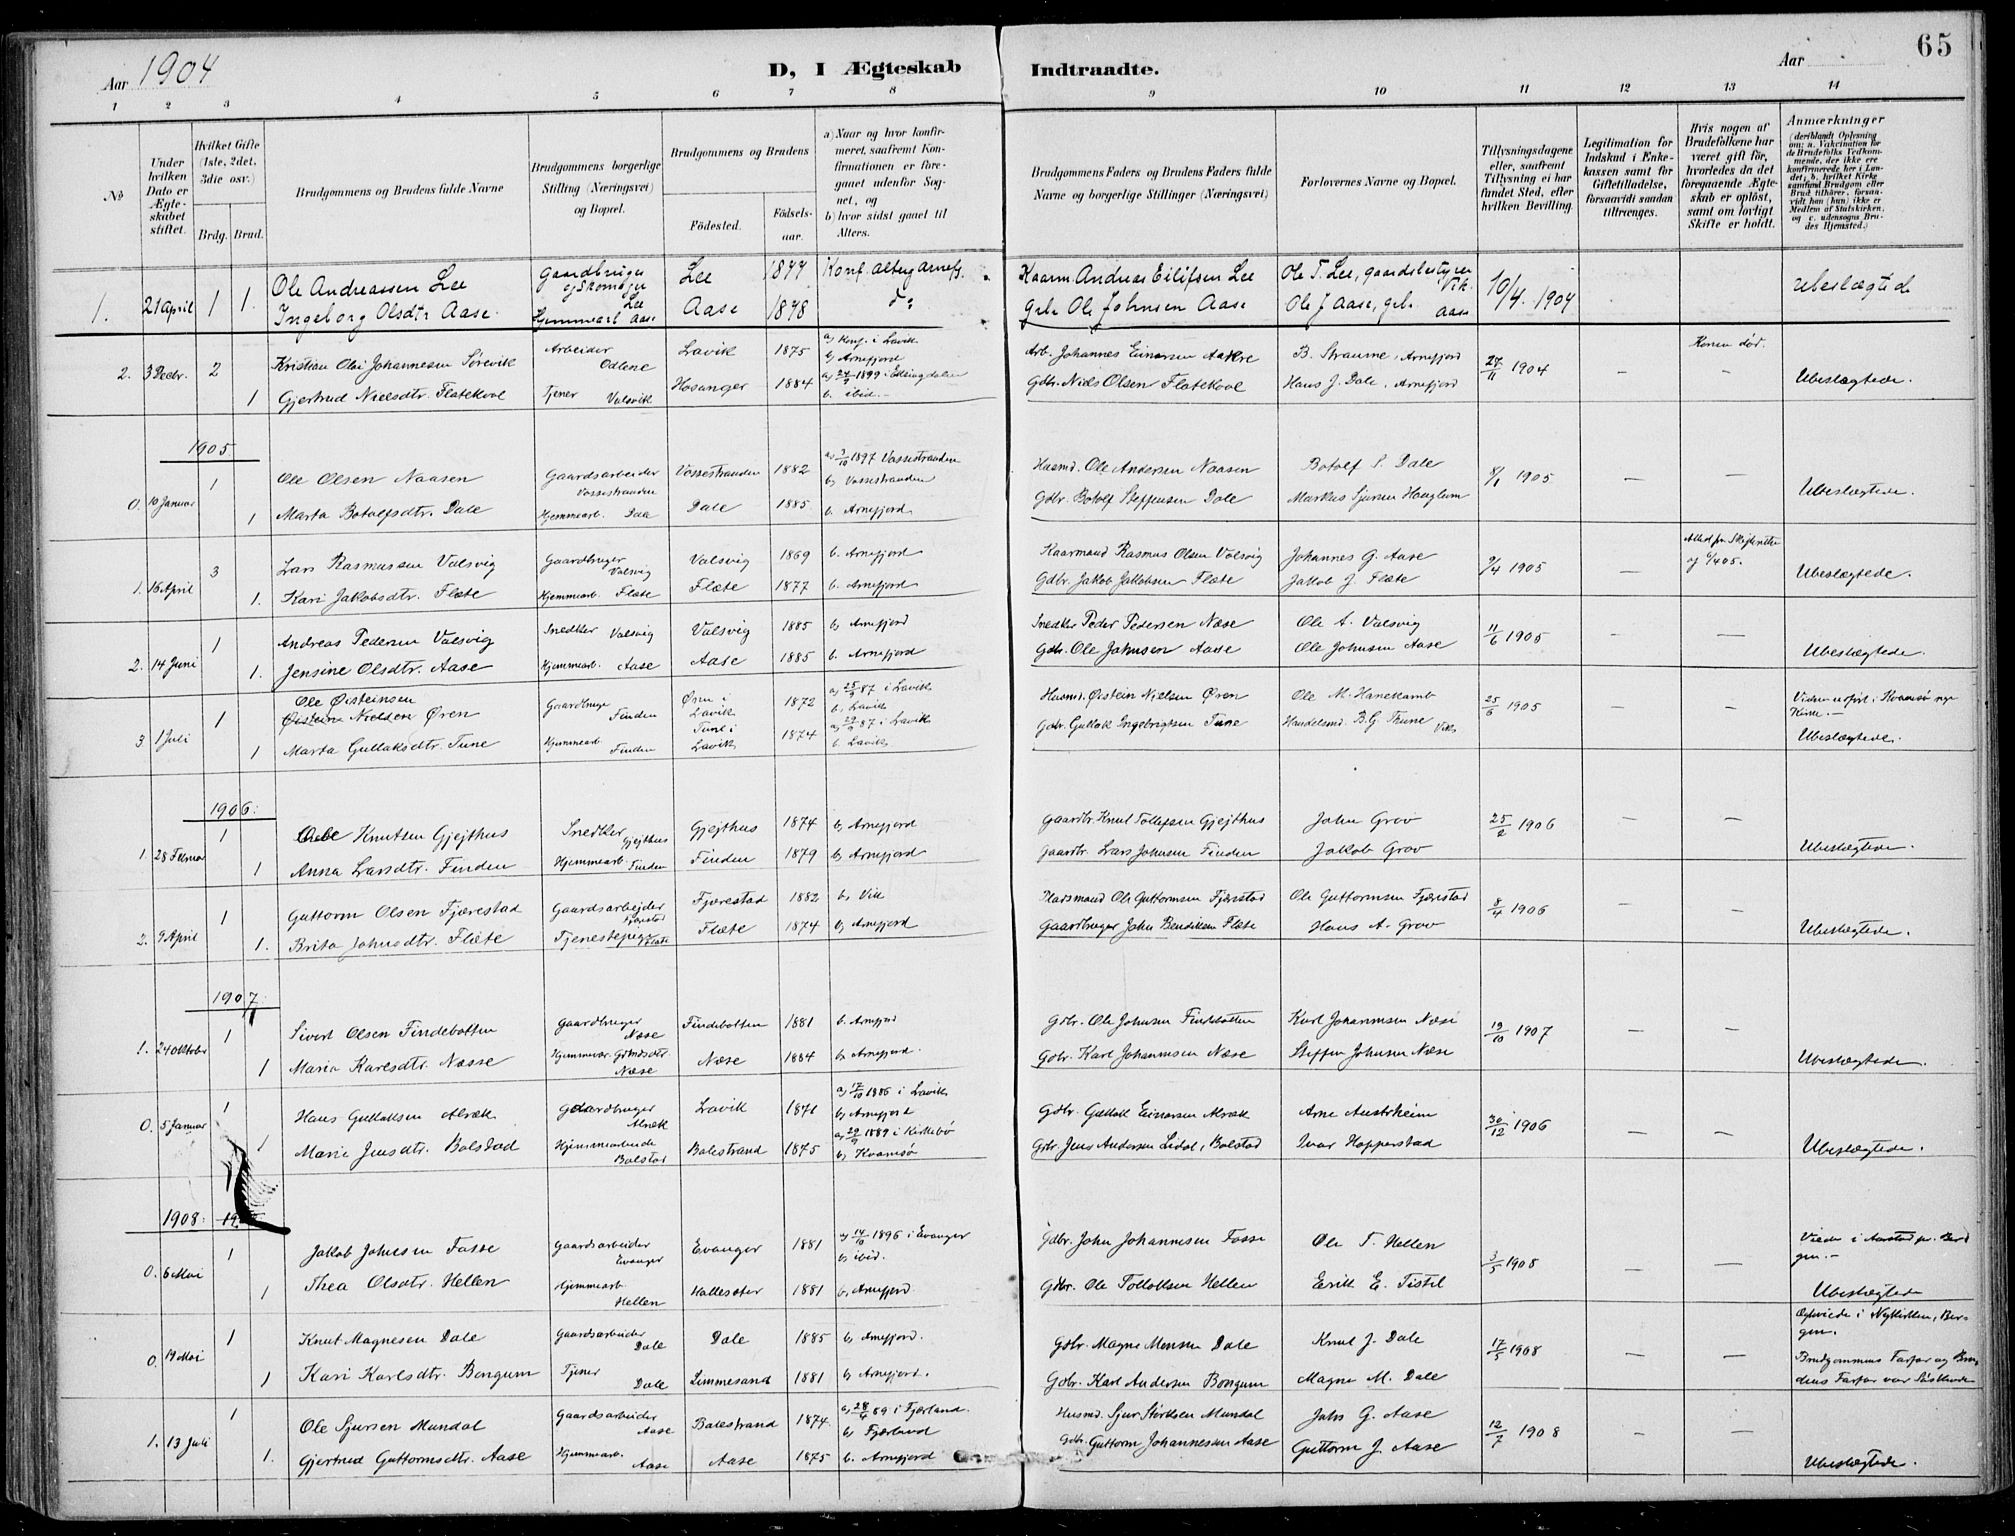 Aar 1904
D, I Ægteskab Indtraadte.
Aar
65
1 2 3 4 5 6 7 8 9 10 11 12 13 14
№
Under hvilken Dato er Ægteskabet stiftet.
Hvilket Gifte (1ste, 2det, 3die osv.)
Brdg. Brud.
Brudgommens og Brudens fulde Navne
Brudgommens borgerlige Stilling (Næringsvei) og Bopæl.
Brudgommens og Brudens
Fødested.
Fødselsaar.
a) Naar og hvor konfirmeret, saafremt Konfirmationen er foregaaet udenfor Sognet, og
b) hvor sidst gaaet til Alters.
Brudgommens Faders og Brudens Faders fulde Navne og borgerlige Stillinger (Næringsvei)
Forlovernes Navne og Bopæl.
Tillysningsdagene eller, saafremt Tillysning ei har fundet Sted, efter hvilken Bevilling.
Legitimation for Indskud i Enkekassen samt for Giftetilladelse, forsaavidt saadan tiltrænges.
Hvis nogen af Brudefolkene har været gift før, hvorledes da det foregaaende Ægteskab er opløst, samt om lovligt Skifte er holdt.
Anmærkninger
(deriblandt Oplysning om: a. Vakcination for de Brudefolks Vedkommende, der ikke ere konfirmerede her i Landet; b. hvilket Kirkesamfund Brudgom eller Brud tilhører, forsaavidt han (hun) ikke er Medlem af Statskirken, og c. udensogns Brudes Hjemsted.)
1. 21 April 1 Ole Andreassen Lee Gaardbruger og Skomager Lee Lee 1877 Konf. Kaarm. Andreas Eilifsen Lee Ole T. Lee, gaardsbestyrer Vik 10/4. 1904 ubeslægtede
1. Ingeborg Olsdtr Aase Hjemmearb Aase Aase 1878 do Grbr Ole Johnsen Aase Ole J Aase, grbr. Aase
2. 3 Decbr. 2 Kristian Olai Johannesen Sørevik Arbeider Odlene Lavik 1875 a) konf. i Lavik b) Arnefjord Arb. Johannes Einarsen Aakre B. Straume, Arnefjord 27/11 1904 — Konen død.
1 Gjertrud Nielsdtr. Flatekvol Tjener Valsvik Hosanger 1884 a) 24/9 1899 i b. ibid. Gdbr. Niels Olsen Flatekvol Hans J. Dale, Arnefjord Ubeslægtede.
1905
0. 10 Januar 1 Ole Olsen Naasen Gaardsarbeider Vossestranden Vossestranden 1882 a) 3/10 1897 Vossestranden b) Vossestranden Husmd. Ole Andersen Naasen Botolf S. Dale 8/1 1905 — —
1 Marta Botolfsdtr. Dale Hjemmearb. Dale Dale 1885. b. Arnefjord. Gdbr. Botolf Steffensen Dale Markus Sjursen Hauglum Ubeslægtede.
1. 16 April 3 Lars Rasmussen Valsvig Gaardbruger Valsvig Valsvig 1869 b. Arnefjord Kaarmand Rasmus Olsen Valsvig Johannes G. Aase 9/4 1905 —
1. Kari Jakobsdtr. Flæte Hjemmearb. Flæte Flæte 1877 b. Arnefjord Gdbr. Jakob Jakobsen Flæte Jakob J. Flæte Ubeslægtede.
2. 14 Juni 1 Andreas Pedersen Valsvig Snedker Valsvig Valsvig 1885 b) Arnefjord Snedker Peder Pedersen Næse Ole A. Valsvig 11/6 1905 — —
1. Jensine Olsdtr. Aase Hjemmearb. Aase Aase 1885 b. Arnefjord Gdbr. Ole Johnson Aase Ole Johnsen Aase Ubeslægtede.
3 1 Juli 1 Ole Øisteinsen Øistein Nielsen Øren Gaardbruger Finden Øren i Lavik 1872 a) 25/9 87 i Lavik b) Lavik Husmd. Øistein Nielsen Øren Ole M. Hanekamb 25/6 1905 — — Vielsen udført i Kvamsø nye Kirke. —
1 Marta Gullaksdtr. Tune Hjemmearb. Finden Tune i Lavik 1874 a) 29/9 87 i Lavik b. Lavik Gdbr. Gullak Ingebrigtsen Tune Handelsmd. B.G. Thune Vik Ubeslægtede.
1906:
1. 28 Februar 1 Ole Knutsen Gjejthus Snedker Gjejthus Gjejthus 1874 b) Arnefjord Gaardbr. Knut Tollefsen Gjejthus John Grov 25/2 1906 — —
1 Anna Larsdtr. Finden Hjemmearb. Finden Finden 1879 b) Arnefjord Gaardbr. Lars Johnsen Finden Jakob Grov Ubeslægtede.
2. 9 April 1 Guttorm Olsen Fjærestad Gaardsarbejder Fjærestad Fjærestad 1882 b, Vik Husmand Ole Guttormsen Fjærestad Ole Guttormsen Fjærestad 8/4 1906 — —
1. Brita Johnsdtr. Flæte Tjenestepige Flæte Flæte 1874 b) Arnefjord Gaardbruger John Bendiksen Flæte Hans A. Grov Ubeslægtede.
1907
1. 24 Oktober 1 Sivert Olsen Findebotten Gaardbruger Næse Findebotten 1881 b. Arnefjord Gdbr. Ole Johnsen Findebotten Karl Johannesen Næse 19/10 1907 — —
1 Maria Karlsdtr. Næsse Hjemmevær. Gdmdsdtr. Næse Næse 1884 b) Arnefjord. Gdbr. Karl Johannesen Næse Steffen Johnsen Næse Ubeslægtede.
0. 5 Januar 1 Hans Gullaksen Alræk Gaardbruger Alræk Lavik 1871 a) 17/10 1886 i Lavik b) Arnefjord Gdbr. Gullak Einarsen Alræk Arne Austrheim 30/12 1906 — —
1 Marie Jensdtr. Bolstad Hjemmearbeide Bolstad Balestrand 1875 a) 29/9 1889 i Kirkebø b) Kvamsø Gdbr. Jens Andersen Lidal, Bolstad Ivar Hopperstad Ubeslægtede.
1908:
0. 6 Mai 1 Jakob Johnsen Fosse Gaardsarbeider Evanger Evanger 1881 a) 14/10 1896 i Evanger b) ibid. Gdbr. John Johannesen Fosse Ole T. Hellen 3/5 1908 — — Viede i Aarstad pr. Bergen. —
1 Thea Olsdtr. Hellen Hjemmearb. Hellen 1881 b. Arnefjord. Gdbr. Ole Tollefsen Hellen Erik E. Tistel Ubeslægtede
0. 19 Mai 1 Knut Magnesen Dale Gaardsarbeider Dale Dale 1885 b) Arnefjord. Gdbr. Magne Monsen Dale Knut J. Dale 17/5 1908 — — i Nykirken, Bergen.
1 Kari Karlsdtr. Bongum Tjener Dale Limmesand 1881 b) Arnefjord. Gdbr. Karl Andersen Bongum Magne M. Dale Brudgommens Farfar og Brudens Farfar var Søskende
1. 13 Juli 1 Ole Sjursen Mundal Gaardsarbeider Aase Balestrand 1874. a) 28/4 89 i Fjærland. b) Fjærland Husmd. Sjur Mundal Johs G. Aase 12/7 1908 — —
1. Gjertrud Guttormsdtr. Aase Hjemmearb. Aase Aase 1875 b. Arnefjord Gdbr. Guttorm Johannessen Aase Guttorm J. Aase Ubeslægtede.